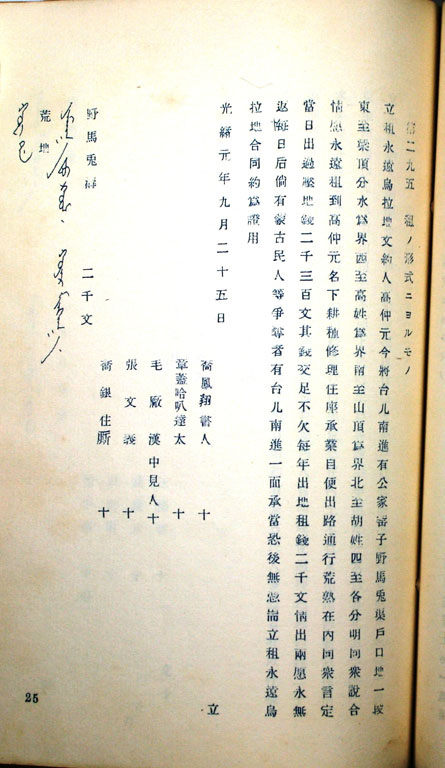 第二九五 租ノ形式ニヨルモノ
立租永遠烏拉地文約人高仲元今將台几南進有公家畜子野馬兎渠戶口地一段
東至梁頂分水爲界西至高姓爲界南至山頂爲界北至胡姓四至各分明同衆說合
情愿永遠租到高仲元名下耕種修理住座承業自便出路通行荒熟在內同衆言定
當日出過壓地錢二千三百文其錢交足不欠每年出地租錢二千文情出兩愿永無
返悔日后倘有蒙古民人等爭奪者有台几南進一面承當恐後無憑立租永遠烏
拉地合同約爲證用
光緒元年九月二十五日 立
喬鳳翔書人 十
章蓋哈叭達太 十
毛廠漢中見人十
張文義 十
喬銀住 十
野馬兎 二千文
荒地
25